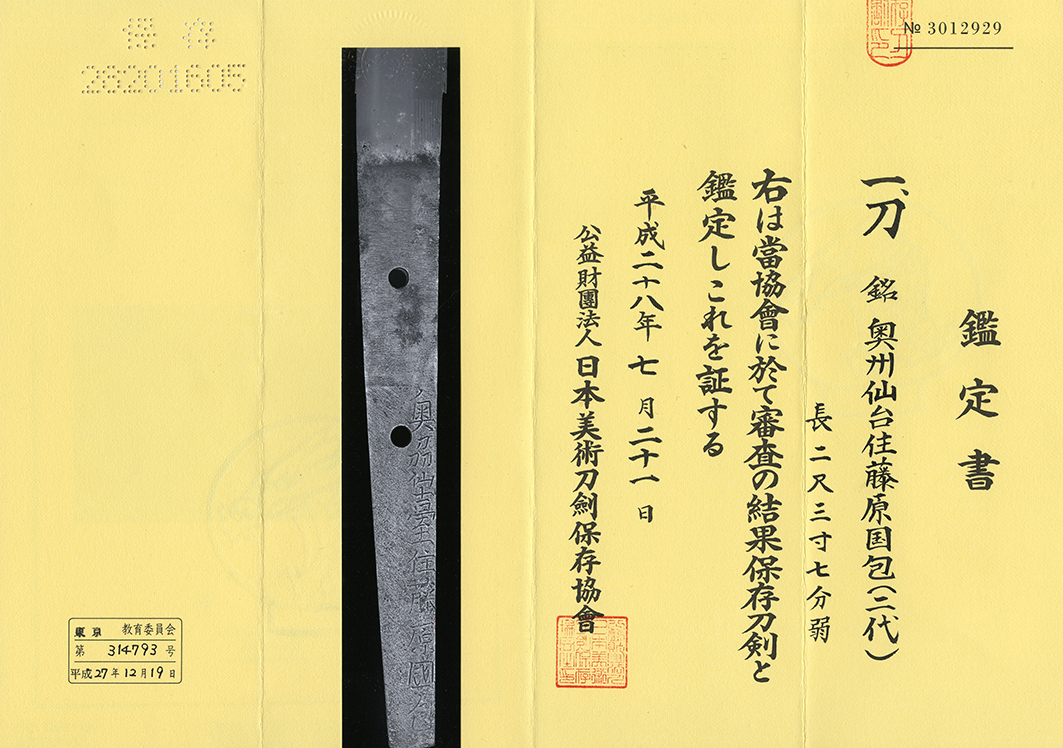 № 3012929
鑑定書
一、刀 銘 奥州仙台住藤原国包(二代)
長二尺三寸七分弱
右は當協會に於て審査の結果保存刀剣と
鑑定しこれを証する
平成二十八年 七月二十一日
公益財團法人 日本美術刀劍保存協會
奥州仙臺住藤原國包
保存
28201605
東京 教育委員会
第 314793 号
平成27年12月19日